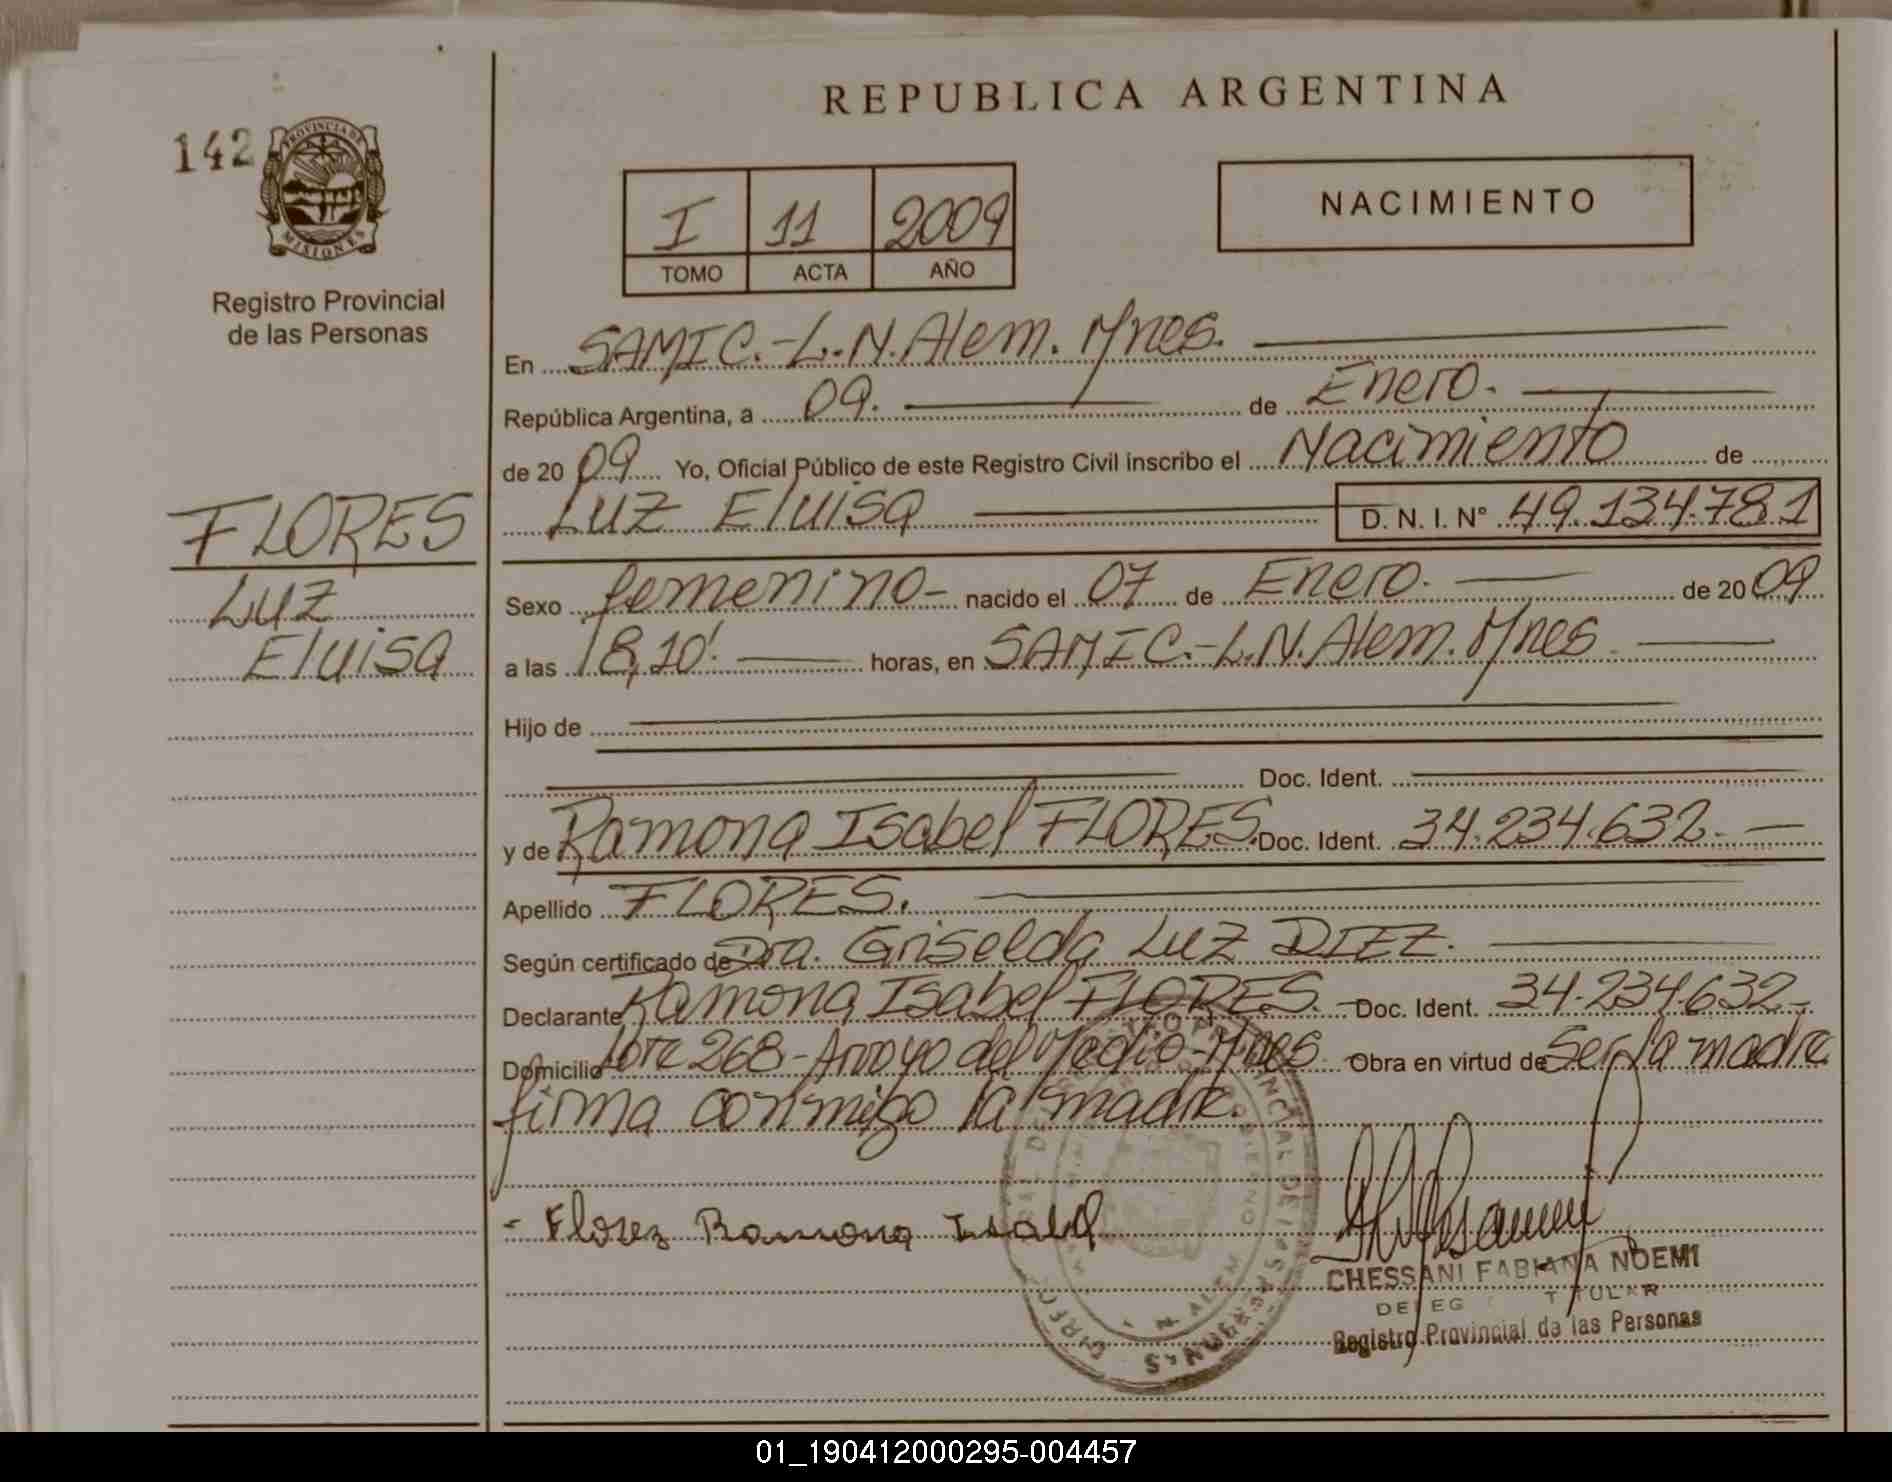 REPUBLICA ARGENTINA
142
PROVINCIA DE
MISIONES
Registro Provincial
de las Personas
I 11 2009
TOMO ACTA AÑO
NACIMIENTO
En SAMIC.-L.N.Alem. Mnes.
República Argentina, a 09. de Enero.
de 2009 Yo, Oficial Público de este Registro Civil inscribo el Nacimiento de
LUZ Eluisa D. N. I. N° 49.134.781
FLORES
LUZ
Eluisa
Sexo femenino- nacido el 07 de Enero. de 2009
a las 18,10'. horas, en SAMIC.-L.N.Alem. Mnes
Hijo de
Doc. Ident.
y de Ramona Isabel FLORES. Doc. Ident. 34.234.632.
Apellido FLORES.
Según certificado de Dra. Griselda LUZ DIEZ.
Declarante Ramona Isabel FLORES. Doc. Ident. 34.234.632-
Domicilio Lote 268-Arroyo del Medio-Mnes Obra en virtud de Ser la madre
firma conmigo la madre.
- Florez Ramona Isabel
CHESSANI FABIANA NOEMI
DELEG TITULAR
Registro Provincial de las Personas
01_190412000295-004457